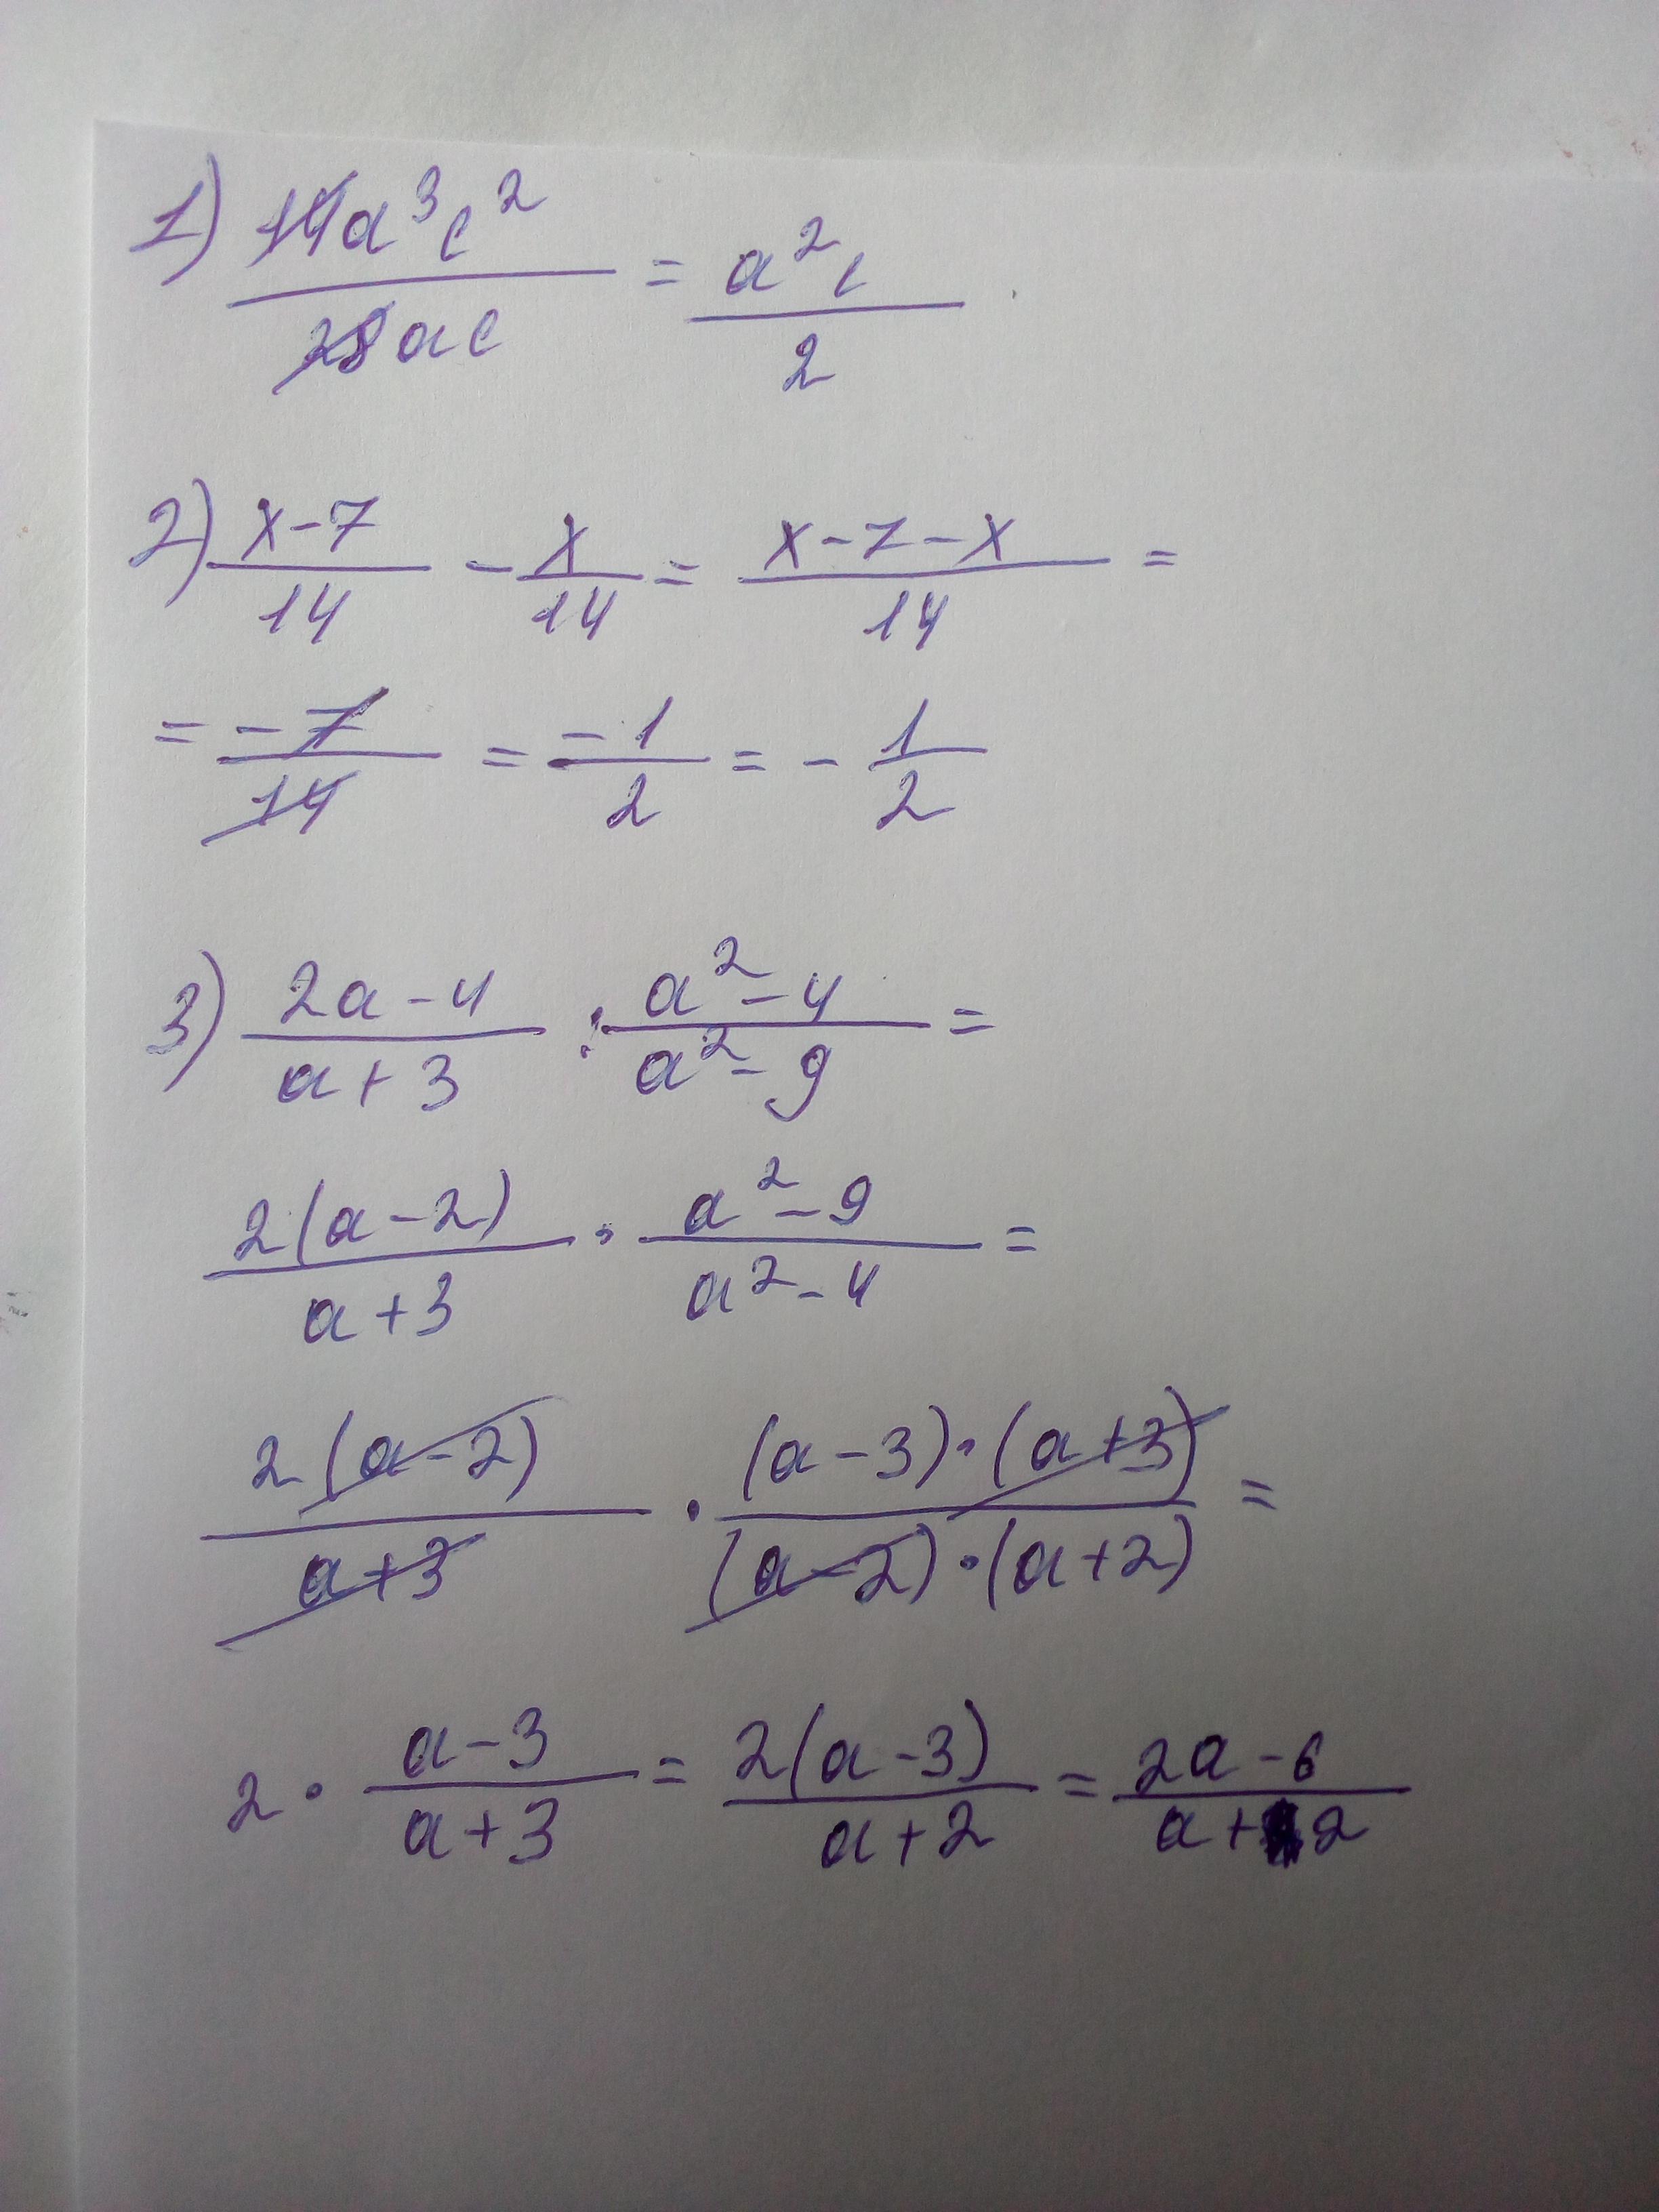 1) 14a³c² / 28ac = a²c / 2
2) x-7 / 14 - x / 14 = x-7-x / 14 =
= -7 / 14 = -1 / 2 = - 1 / 2
3) 2a-4 / a+3 : a²-4 / a²-9 =
2(a-2) / a+3 · a²-9 / a²-4 =
2(a-2) / a+3 · (a-3)·(a+3) / (a-2)·(a+2) =
2 · a-3 / a+3 = 2(a-3) / a+2 = 2a-6 / a+2